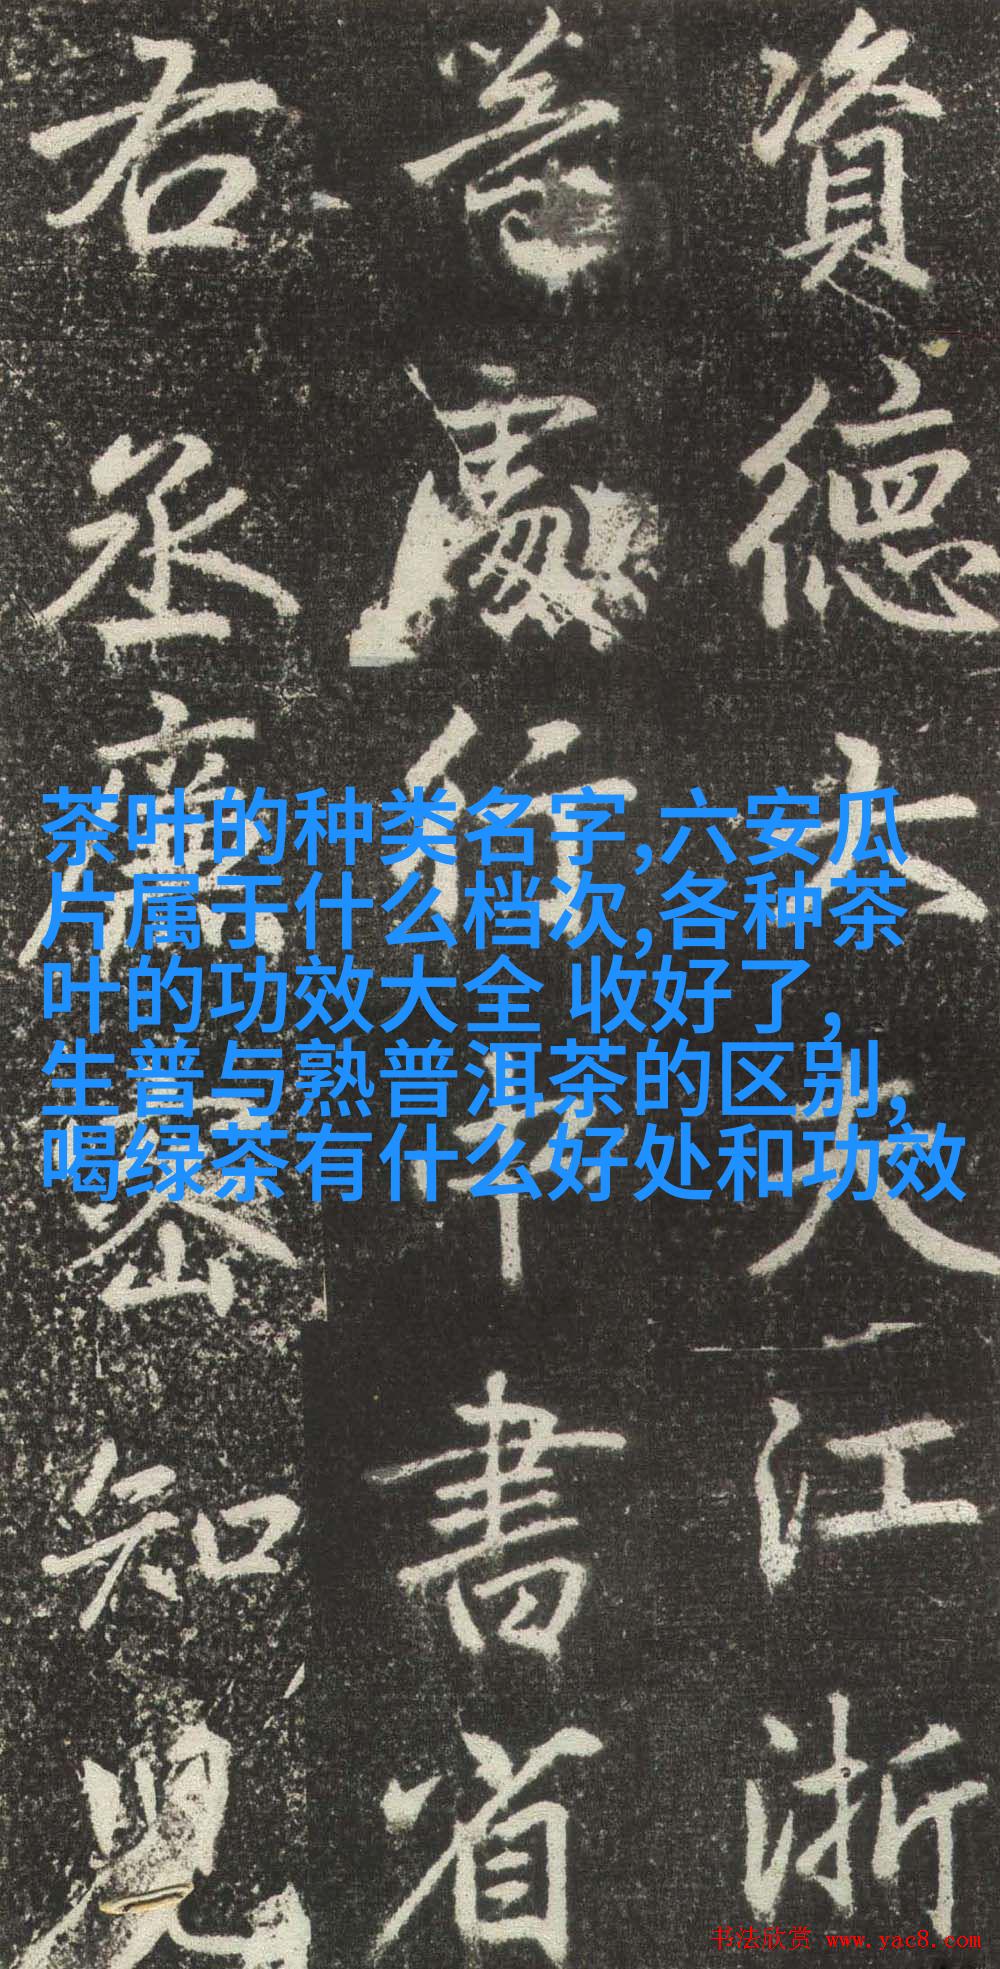 資德大夫江浙
等處行中書省
右丞廉密知兒
茶叶的种类名字,六安瓜
片属于什么档次,各种茶
叶的功效大全 收好了,
生普与熟普洱茶的区别,
喝绿茶有什么好处和功效
书法欣赏 www.yac8.com